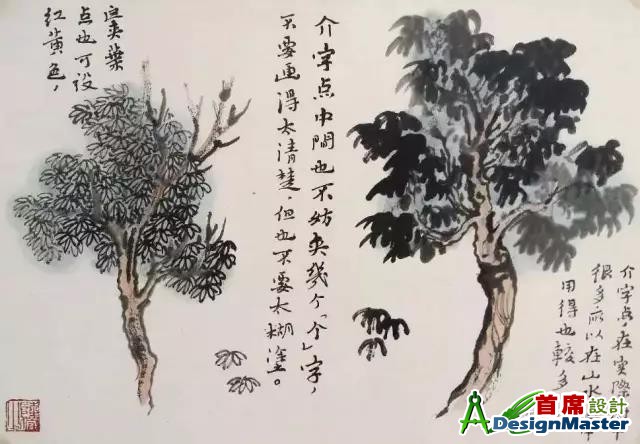 介字点，在实際
很多所以在山水
用得也較多
介字点中間也不妨夹幾个「个」字，
不要画得太清楚，但也不要太糊塗。
夾葉
点也可设
红黄色，
首席設計
ADesignMaster